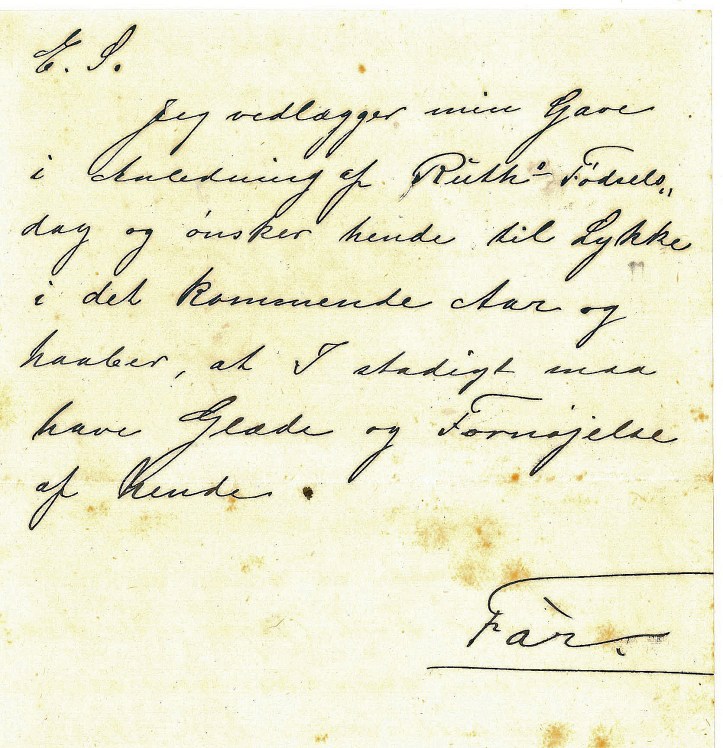 E. S.
Jeg vedlægger min Gave
i Anledning af Ruths Fødsels„
dag og ønsker hende til Lykke
i det kommende Aar og
haaber, at I stadigt maa
have Glæde og Fornøjelse
af hende.
Far.